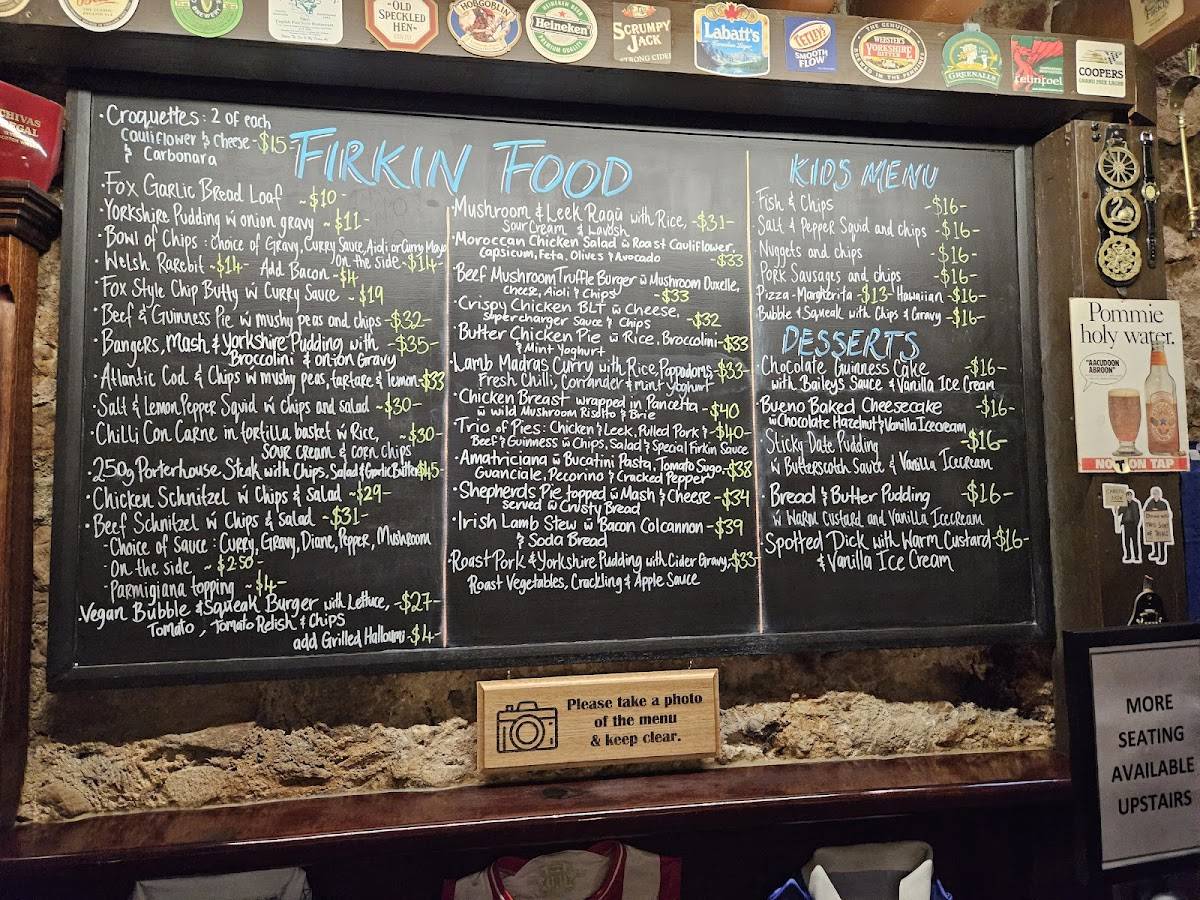 OLD
SPECKLED
HEN
HOBGOBLIN
Heineken
SCRUMPY
JACK
STRONG CIDER
Labatt's
TETLEY'S
SMOOTH
FLOW
THE GENUINE
WEBSTER'S
YORKSHIRE
BITTER
GREENALLS
felinfoel
COOPERS
CHIVAS
REGAL
FIRKIN FOOD
· Croquettes: 2 of each
Cauliflower & cheese -$15-
& Carbonara
· Fox Garlic Bread Loaf ~$10
· Yorkshire Pudding w onion gravy ~$11-
· Bowl of Chips : choice of Gravy, Curry Sauce, Aioli or Curry Mayo
on the side -$14-
· Welsh Rarebit -$14- Add Bacon -$4
· Fox Style Chip Butty w Curry Sauce ~$19
· Beef & Guinness Pie w mushy peas and chips -$32-
· Bangers, Mash & Yorkshire Pudding with -$35-
Broccolini & onion Gravy
· Atlantic Cod & Chips w mushy peas, tartare & lemon -$33
· Salt & Lemon Pepper Squid w chips and salad ~$30-
· Chilli Con Carne in tortilla basket w Rice, ~$30-
sour cream & corn chips
· 250g Porterhouse Steak with Chips, Salad & Garlic Butter $45-
· Chicken Schnitzel w Chips & Salad ~$29-
· Beef Schnitzel w Chips & Salad ~$31-
- Choice of Sauce : Curry, Gravy, Diane, Pepper, Mushroom
- On the side ~$2.50-
- Parmigiana topping ~$4-
· Vegan Bubble & Squeak Burger with Lettuce, -$27-
Tomato, Tomato Relish & Chips
add Grilled Halloumi -$4-
· Mushroom & Leek Ragù with Rice, -$31-
Sour Cream & Lavosh
· Moroccan Chicken Salad w Roast Cauliflower,
Capsicum, Feta, Olives & Avocado -$33
· Beef Mushroom Truffle Burger w Mushroom Duxelle,
Cheese, Aioli & Chips -$33
· Crispy Chicken BLT w Cheese,
Supercharger Sauce & Chips -$32
· Butter Chicken Pie w Rice, Broccolini -$33
& Mint Yoghurt
· Lamb Madras Curry with Rice, Poppadoms, -$33-
Fresh Chilli, Corriander & mint Yoghurt
· Chicken Breast wrapped in Pancetta -$40
w wild Mushroom Risotto & Brie
· Trio of Pies: Chicken & Leek, Pulled Pork & -$40-
Beef & Guinness w Chips, Salad & Special Firkin Sauce
· Amatriciana w Bucatini Pasta, Tomato Sugo, -$38
Guanciale, Pecorino & Cracked Pepper
· Shepherds Pie topped w Mash & Cheese -$34
served w Crusty Bread
· Irish Lamb Stew w Bacon Colcannon -$39
& Soda Bread
· Roast Pork & Yorkshire Pudding with Cider Gravy, $33-
Roast Vegetables, Crackling & Apple Sauce
KIDS MENU
· Fish & Chips -$16-
· Salt & Pepper Squid and chips -$16-
· Nuggets and chips -$16-
· Pork Sausages and chips -$16-
· Pizza - Margherita -$13- Hawaiian -$16-
· Bubble & Squeak with Chips & Gravy -$16-
DESSERTS
· Chocolate Guinness Cake -$16-
with Baileys Sauce & Vanilla Ice Cream
· Bueno Baked Cheesecake -$16-
w Chocolate Hazelnut & Vanilla Icecream
· Sticky Date Pudding -$16-
w Butterscotch Sauce & Vanilla Icecream
· Bread & Butter Pudding -$16-
w Warm Custard and Vanilla Icecream
· Spotted Dick with Warm Custard -$16-
& Vanilla Ice Cream
Please take a photo
of the menu
& keep clear.
Pommie
holy water.
"AACUDOON
ABROON"
NOW ON TAP
MORE
SEATING
AVAILABLE
UPSTAIRS